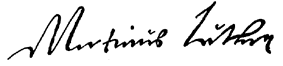 Martinus Luther